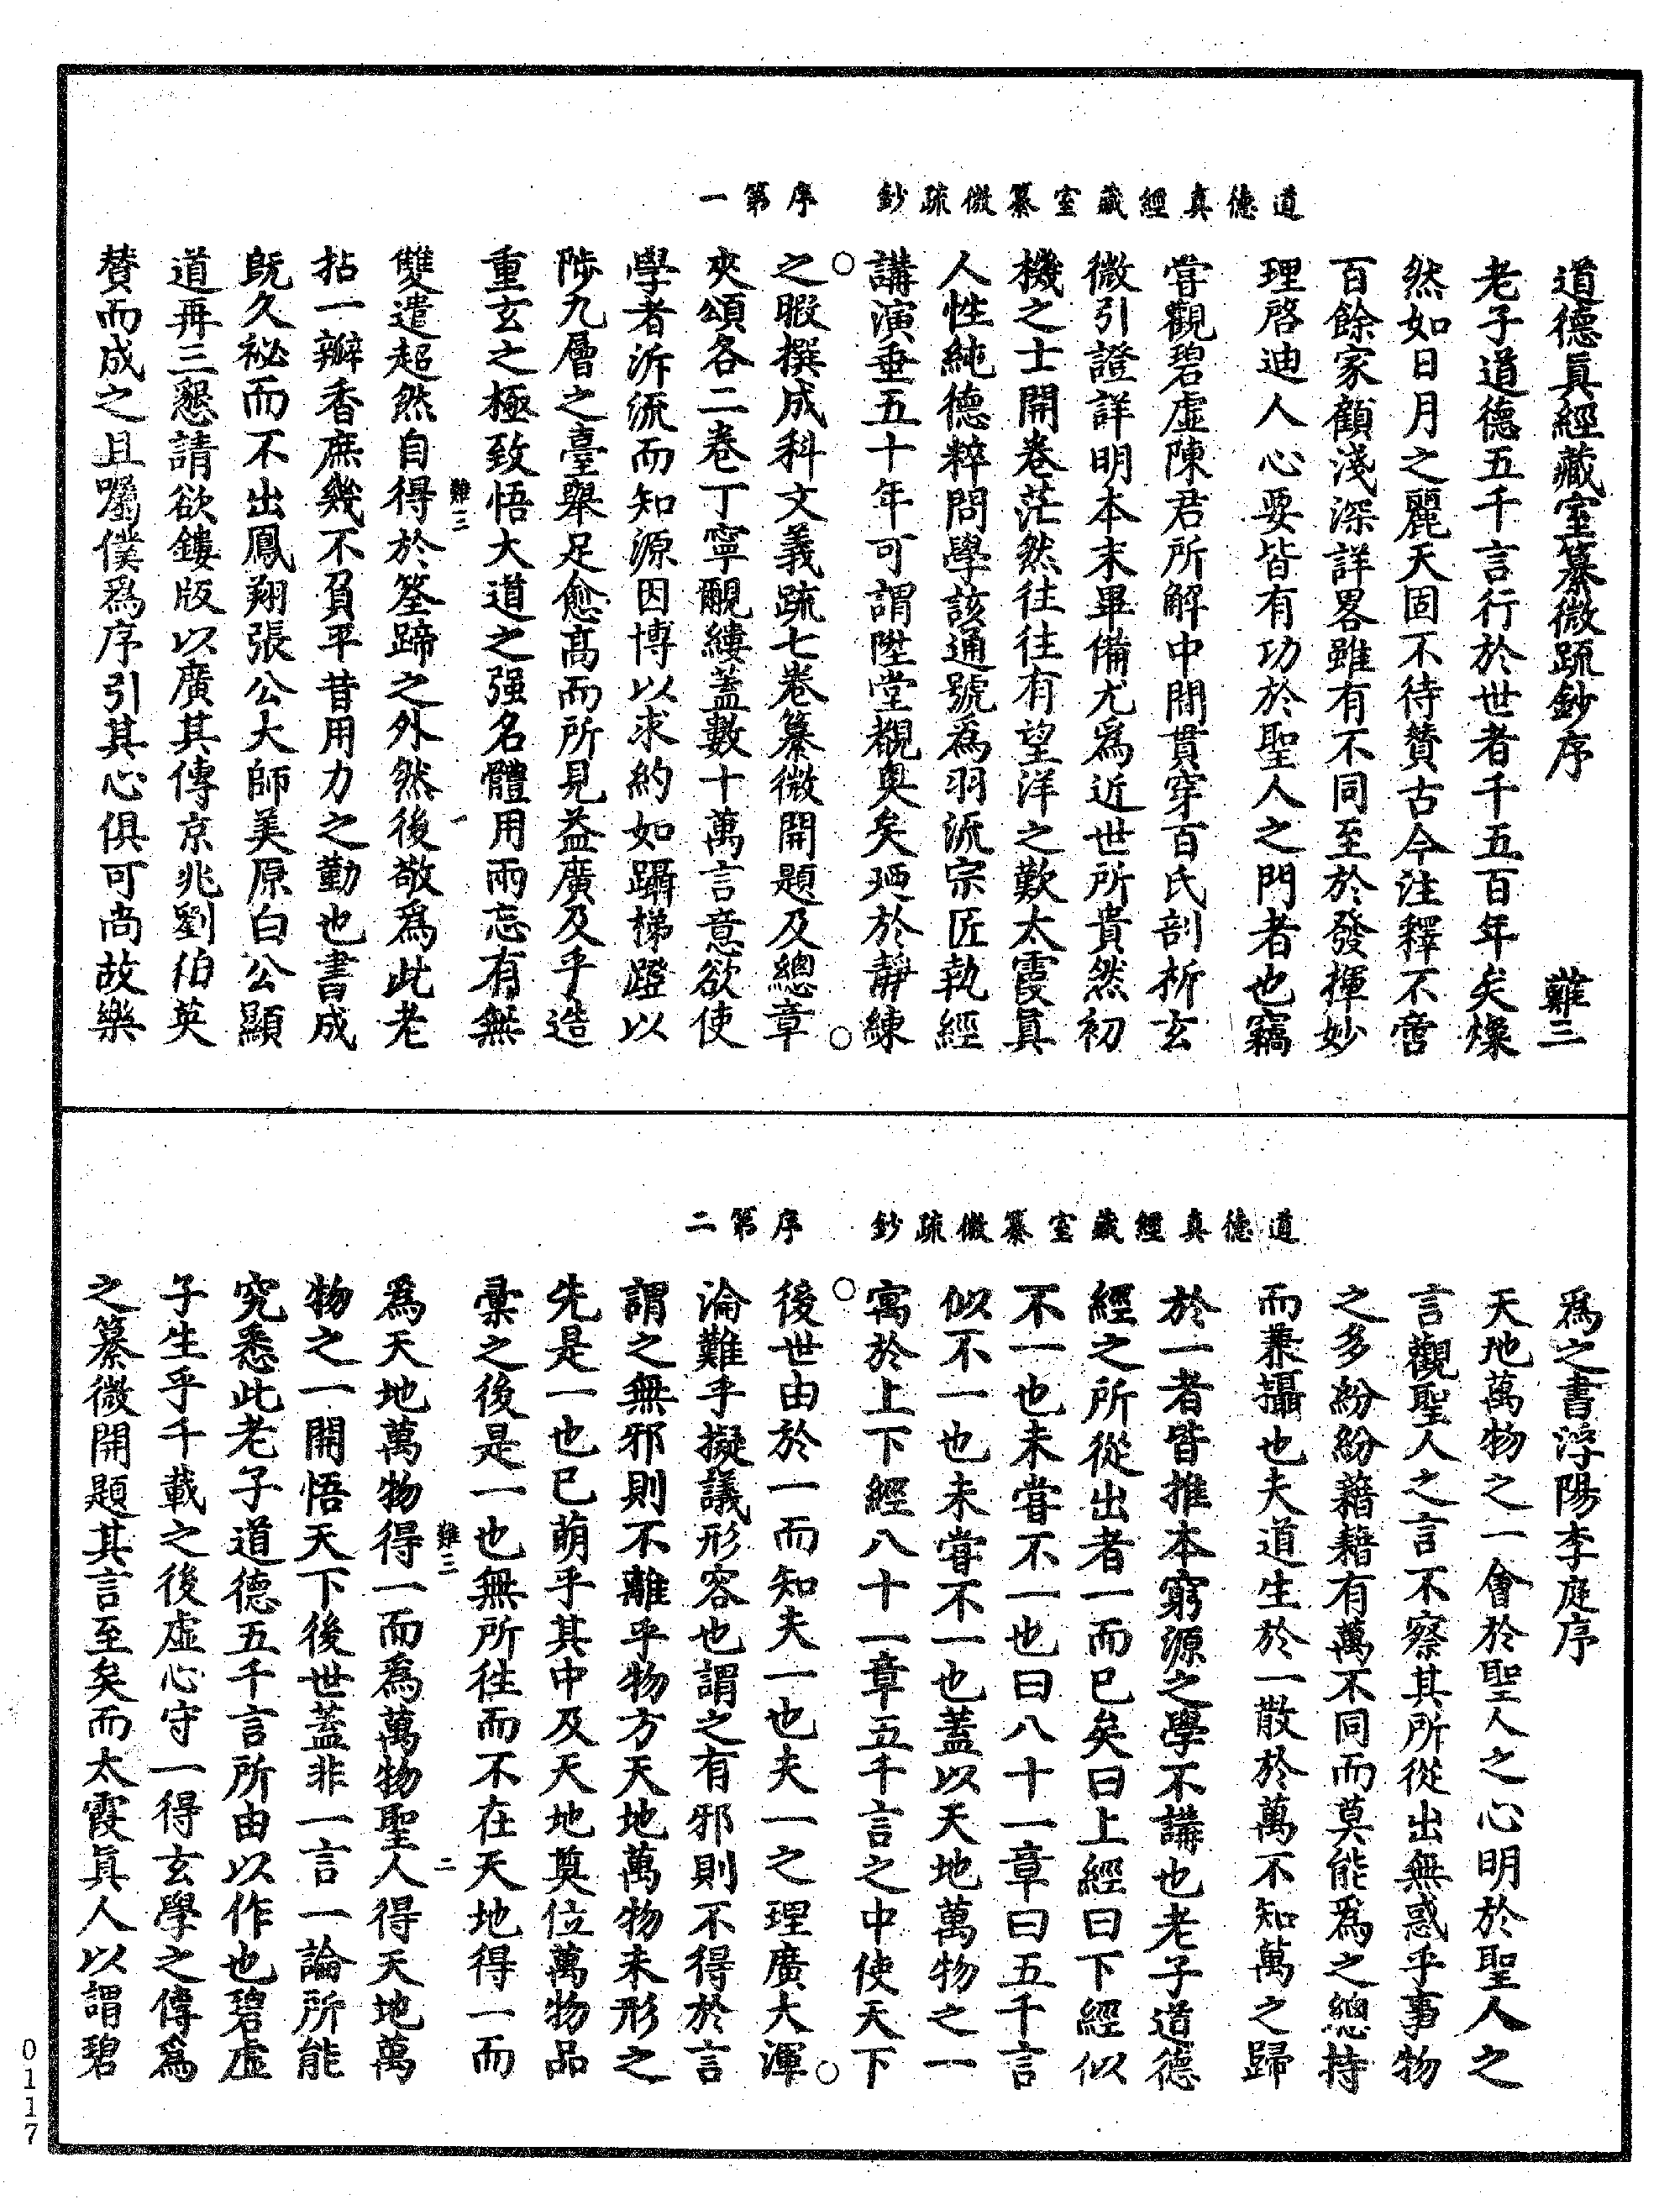 道德眞經藏室纂微疏鈔　序第一
道德眞經藏室纂微疏鈔序　難三
老子道德五千言行於世者千五百年矣燦
然如日月之麗天固不待賛古今注釋不啻
百餘家顧淺深詳畧雖有不同至於發揮妙
理啓迪人心要皆有功於聖人之門者也竊
甞觀碧虛陳君所解中間貫穿百氏剖析玄
微引證詳明本末畢備尤爲近世所貴然初
機之士開卷茫然往往有望洋之歎太霞眞
人性純德粹問學該通號爲羽流宗匠執經
講演垂五十年可謂陞堂覩奧矣廼於靜練
之暇撰成科文義疏七卷纂微開題及總章
夾頌各二卷丁寧覼縷蓋數十萬言意欲使
學者泝流而知源因博以求約如躡梯蹬以
陟九層之臺舉足愈高而所見益廣及乎造
重玄之極致悟大道之强名體用兩忘有無
難三　一
雙遣超然自得於筌蹄之外然後敬爲此老
拈一瓣香庶幾不負平昔用力之勤也書成
旣久祕而不出鳳翔張公大師美原白公顯
道再三懇請欲鏤版以廣其傳京兆劉伯英
賛而成之且囑僕爲序引其心俱可尚故樂
道德眞經藏室纂微疏鈔　序第二
爲之書浮陽李庭序
天地萬物之一會於聖人之心明於聖人之
言觀聖人之言不察其所從出無惑乎事物
之多紛紛藉藉有萬不同而莫能爲之總持
而兼攝也夫道生於一散於萬不知萬之歸
於一者皆推本窮源之學不講也老子道德
經之所從出者一而已矣曰上經曰下經似
不一也未甞不一也曰八十一章曰五千言
似不一也未甞不一也蓋以天地萬物之一
寓於上下經八十一章五千言之中使天下
後世由於一而知夫一也夫一之理廣大渾
淪難乎擬議形容也謂之有邪則不得於言
謂之無邪則不離乎物方天地萬物未形之
先是一也已萌乎其中及天地奠位萬物品
彙之後是一也無所往而不在天地得一而
難三　二
爲天地萬物得一而爲萬物聖人得天地萬
物之一開悟天下後世蓋非一言一論所能
究悉此老子道德五千言所由以作也碧虛
子生乎千載之後虛心守一得玄學之傳爲
之纂微開題其言至矣而太霞眞人以謂碧
0117